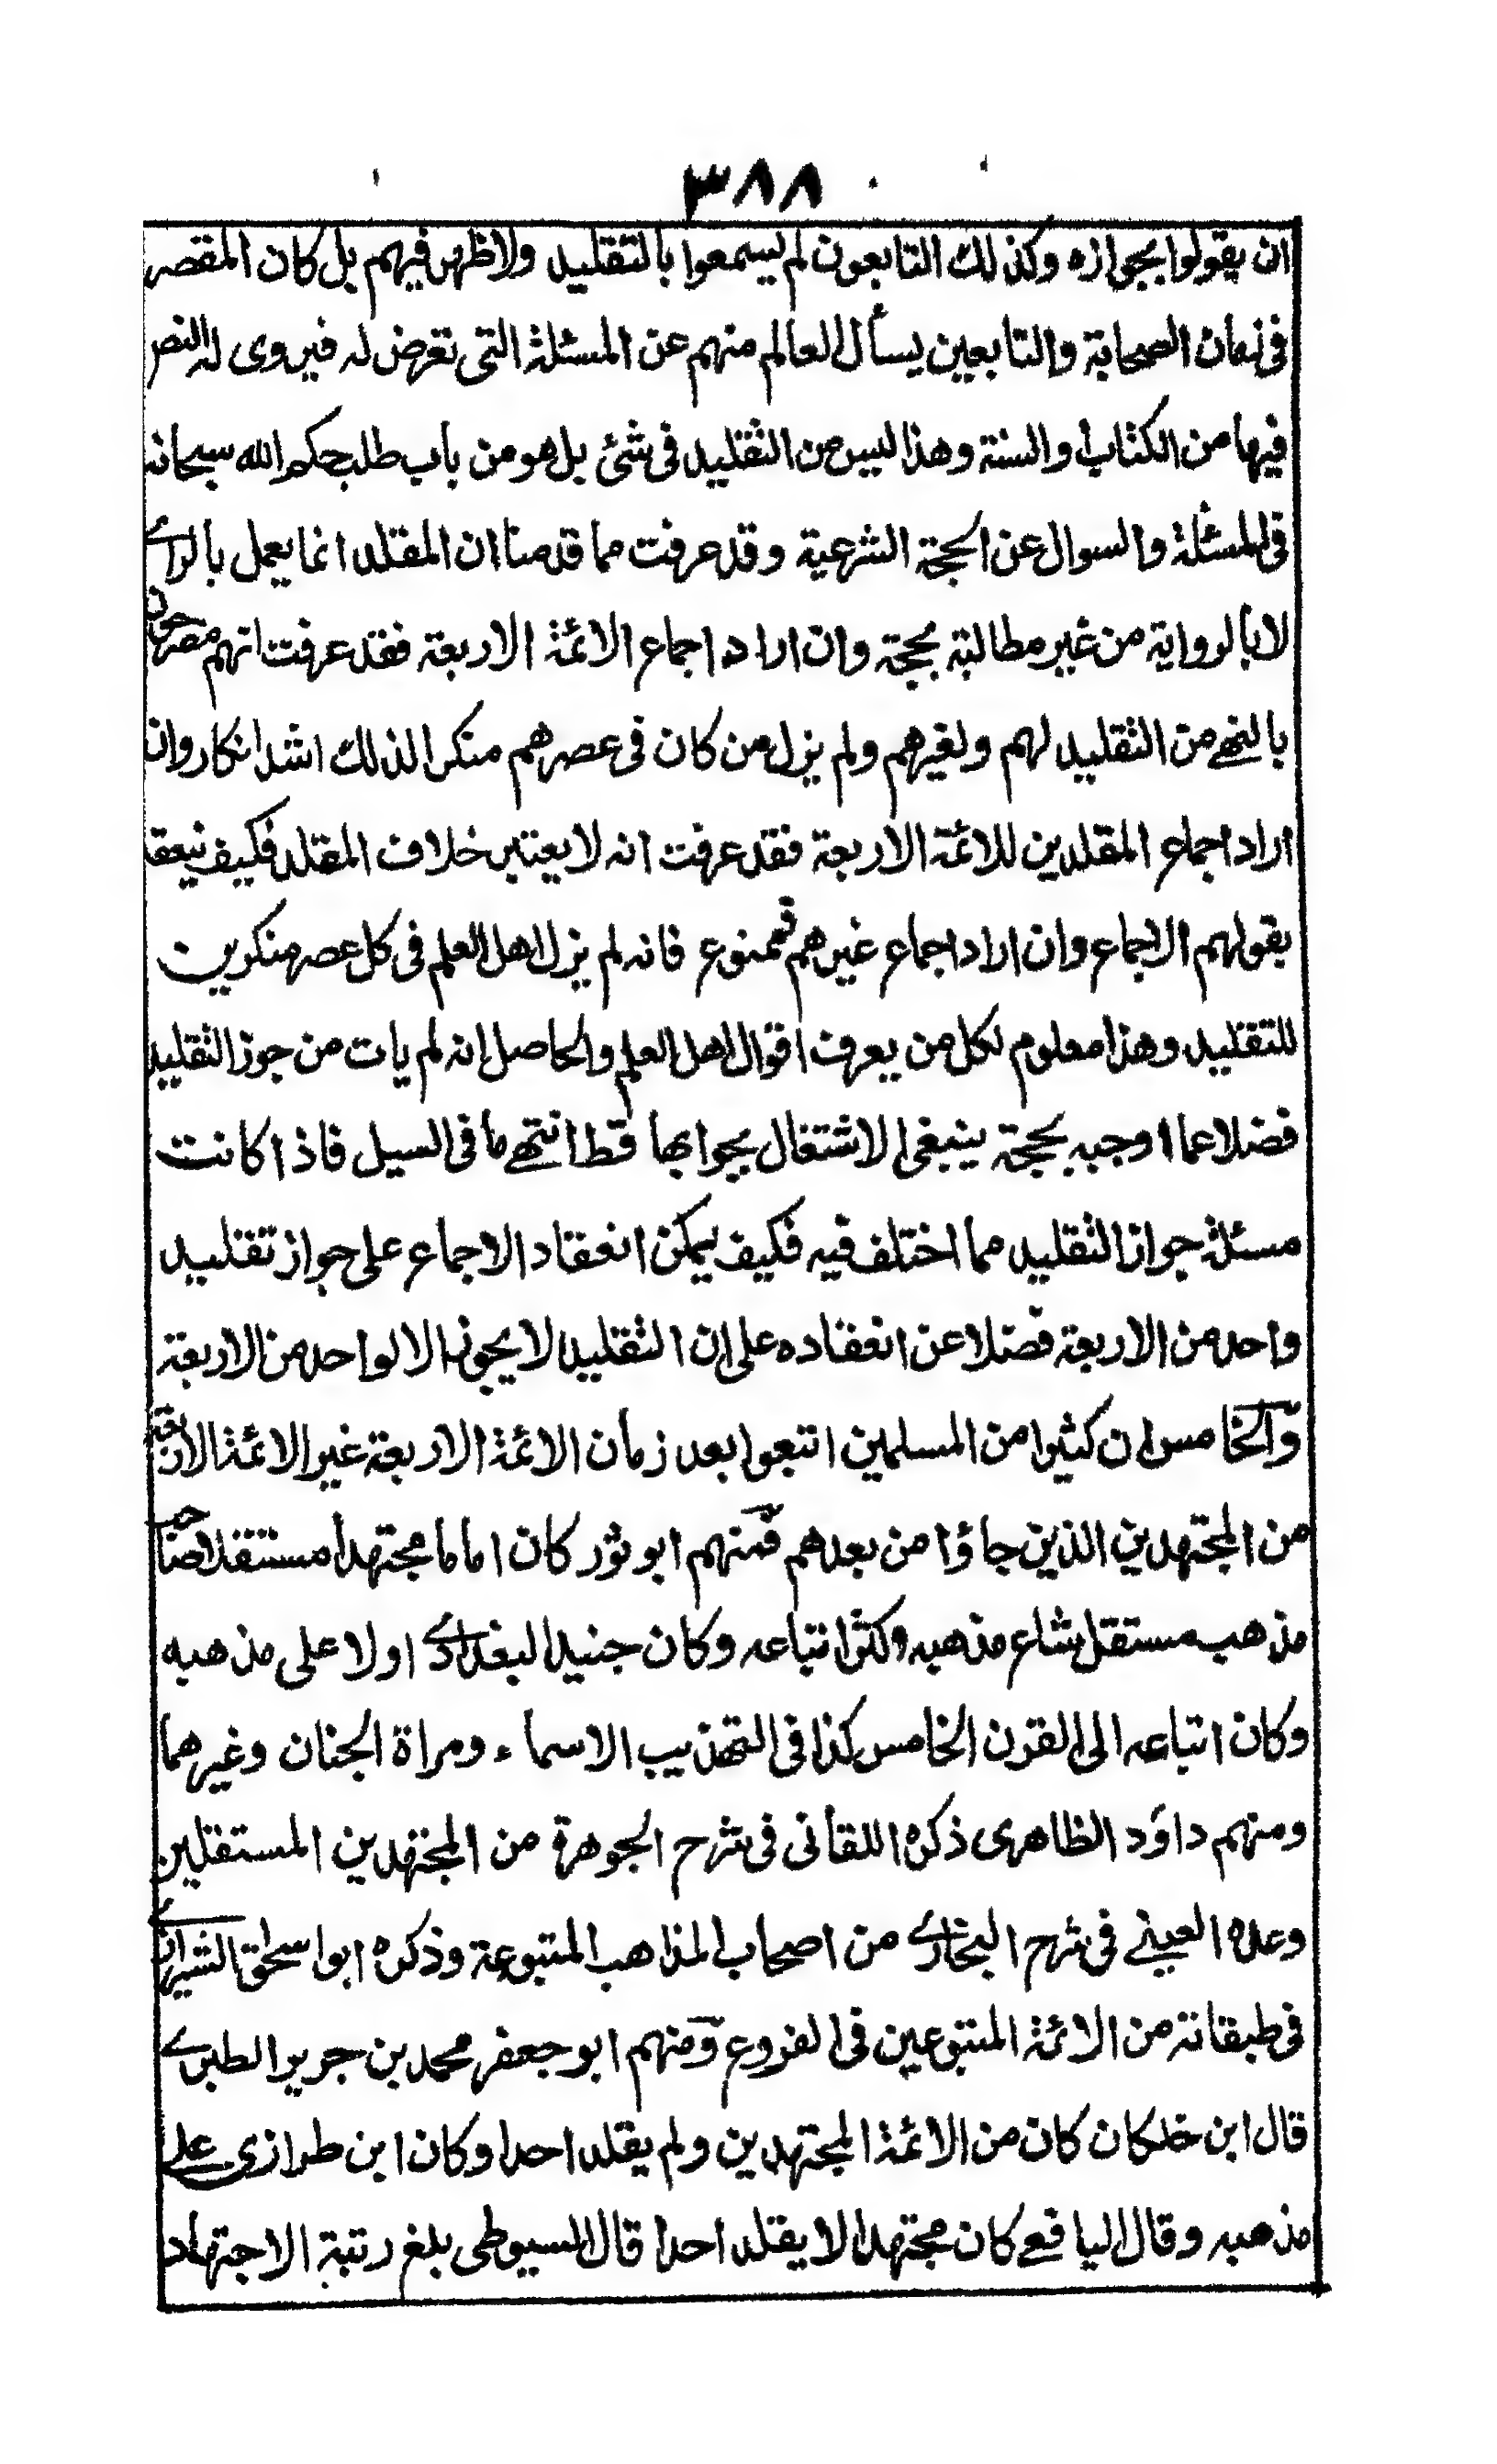 ٣٨٨
ان يقولوا بجوازه وكذلك التابعون لم يسمعوا بالتقليد ولا ظهر فيهم بل كان المقصر
فى زمان الصحابة والتابعين يسأل العالم منهم عن المسئلة التى تعرض له فيروى له النص
فيها من الكتاب أو السنة وهذا ليس من التقليد فى شئ بل هو من باب طلب حكم الله سبحانه
فى المسئلة والسوال عن الحجة الشرعية وقد عرفت مما قدمنا ان المقلد انما يعمل بالراے
لا بالرواية من غير مطالبة بحجة وان اراد اجماع الائمة الاربعة فقد عرفت انهم مصرحون
بالنهے من التقليد لهم ولغيرهم ولم يزل من كان فى عصرهم منكرا لذلك اشد انكار وان
اراد اجماع المقلدين للائمة الاربعة فقد عرفت انه لا يعتبر خلاف المقلد فكيف ينعقد
بقولهم الاجماع وان اراد اجماع غيرهم فممنوع فانه لم يزل اهل العلم فى كل عصر منكرين
للتقليد وهذا معلوم لكل من يعرف اقوال اهل العلم والحاصل انه لم يات من جوز التقليد
فضلا عما اوجبه بحجة ينبغى الاشتغال بجوابها قط انتهے ما فى السيل فاذا كانت
مسئلة جواز التقليد مما اختلف فيه فكيف يمكن انعقاد الاجماع على جواز تقليد
واحد من الاربعة فضلا عن انعقاده على ان التقليد لا يجوز الا لواحد من الاربعة
والخامس ان كثيرا من المسلمين اتبعوا بعد زمان الائمة الاربعة غير الائمة الاربعة
من المجتهدين الذين جاؤا من بعدهم فمنهم ابو ثور كان اماما مجتهدا مستقلا صاحب
مذهب مستقل شاع مذهبه وكثر اتباعه وكان جنيد البغدادے اولا على مذهبه
وكان اتباعه الى القرن الخامس كذا فى التهذيب الاسماء ومراة الجنان وغيرهما
ومنهم داود الظاهرى ذكره اللقانى فى شرح الجوهرة من المجتهدين المستقلين
وعده العينے فى شرح البخارے من اصحاب المذاهب المتبوعة وذكره ابو اسحاق الشيرازے
فى طبقاته من الائمة المتبوعين فى الفروع ومنهم ابو جعفر محمد بن جرير الطبرے
قال ابن خلكان كان من الائمة المجتهدين ولم يقلد احدا وكان ابن طرازى على
مذهبه وقال اليافعے كان مجتهدا لا يقلد احدا قال السيوطى بلغ رتبة الاجتهاد